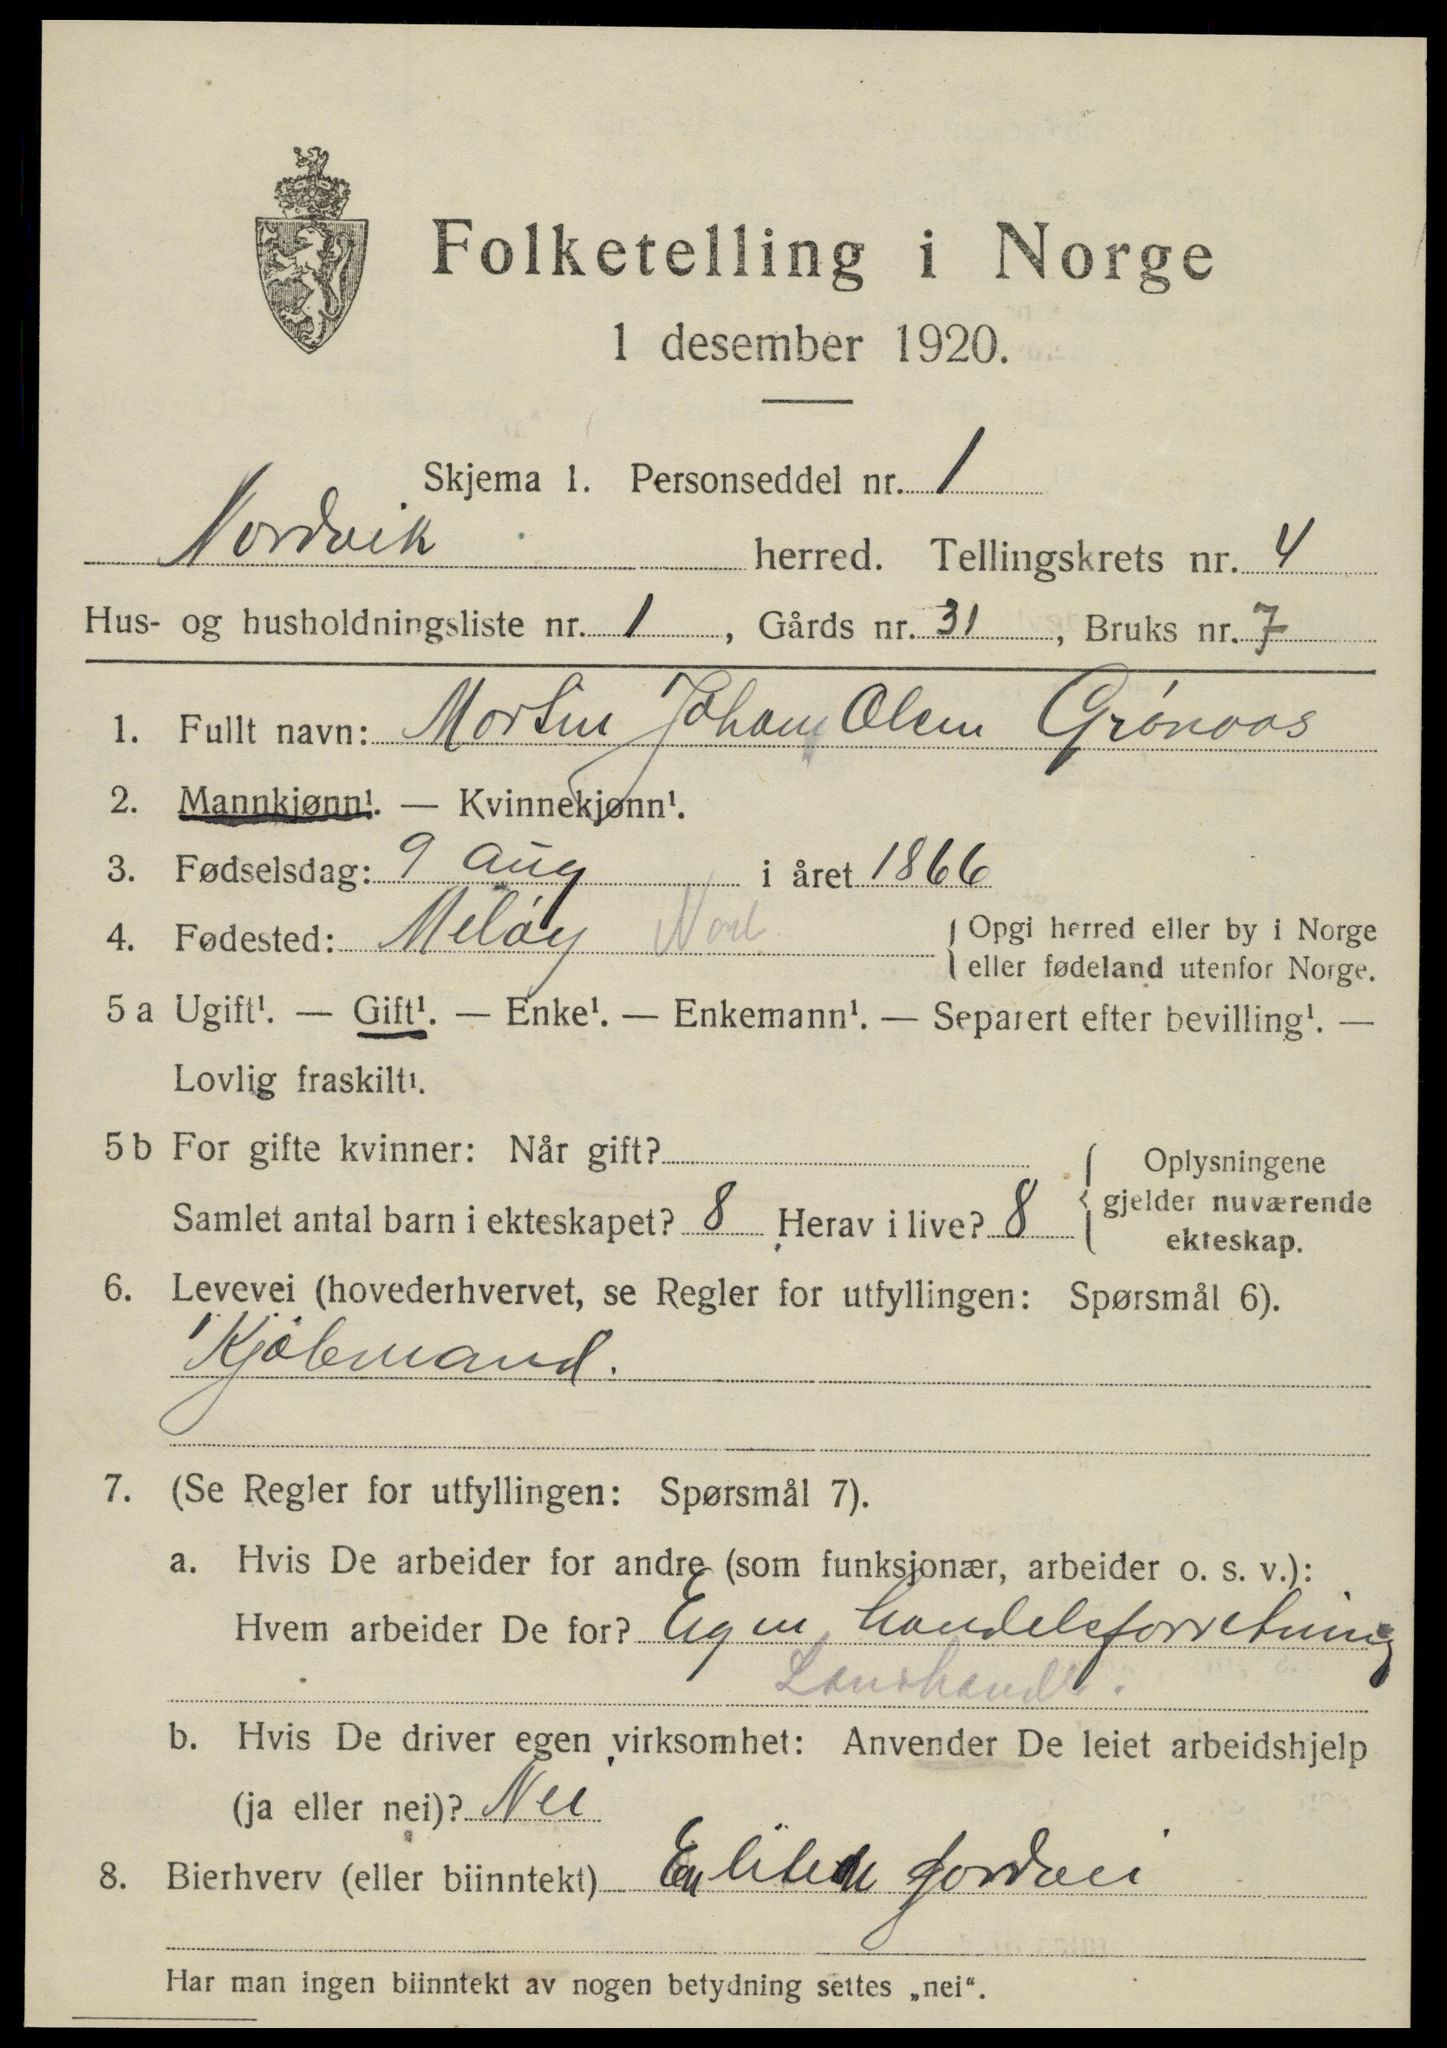 Folketelling i Norge
1 desember 1920.
Skjema 1. Personseddel nr. 1
Nordvik herred. Tellingskrets nr. 4
Hus- og husholdningsliste nr. 1, Gårds nr. 31, Bruks nr. 7
1. Fullt navn: Mortin Johan Olsen Grønaas
2. Mannkjønn¹. — Kvinnekjønn¹.
3. Fødselsdag: 9 aug i året 1866
4. Fødested: Meløy Nord { Opgi herred eller by i Norge
eller fødeland utenfor Norge.
5 a Ugift¹. — Gift¹. — Enke¹. — Enkemann¹. — Separert efter bevilling¹. —
Lovlig fraskilt¹.
5 b For gifte kvinner: Når gift?
Samlet antal barn i ekteskapet? 8 Herav i live? 8
{ Oplysningene
gjelder nuværende
ekteskap.
6. Levevei (hovederhvervet, se Regler for utfyllingen: Spørsmål 6).
Kjøbmand.
7. (Se Regler for utfyllingen: Spørsmål 7).
a. Hvis De arbeider for andre (som funksjonær, arbeider o. s. v.):
Hvem arbeider De for? Egen handelsforretning
Lanhandel.
b. Hvis De driver egen virksomhet: Anvender De leiet arbeidshjelp
(ja eller nei)? Nei
8. Bierhverv (eller biinntekt) En liten jordvei
Har man ingen biinntekt av nogen betydning settes „nei“.